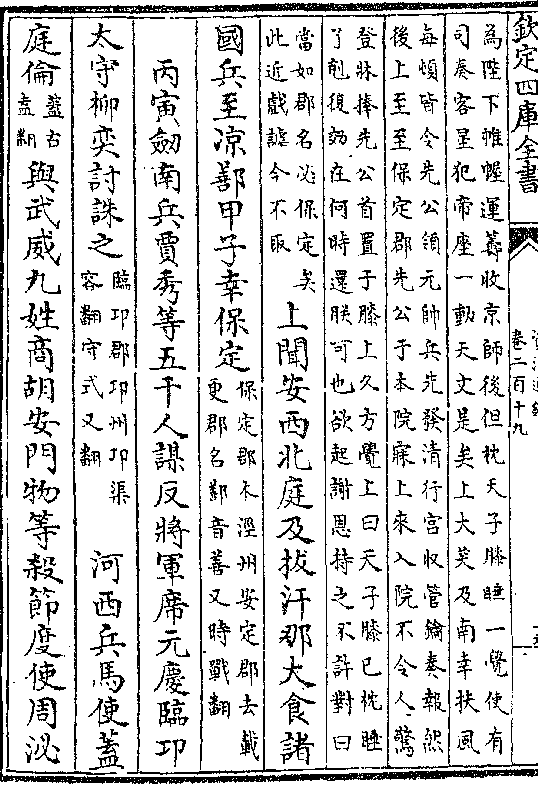 欽定四庫全書
卷二百十九
為陛下帷幄運籌收京師後但枕天子膝睡一覺使有
司奏客星犯帝座一動天文是矣上大笑及南幸扶風
每頓皆令先公領元帥兵先發清行宮收管鑰奏報然
後上至至保定郡先公于本院寐上來入院不令人驚
登牀捧先公首置于膝上久方覺上曰天子膝已枕睡
了剋復効在何時還朕可也欲起謝恩持之不許對曰
當如郡名必保定矣
此近戲謔今不取
上聞安西北庭及拔汗那大食諸
國兵至凉鄯甲子幸保定
保定郡本涇州安定郡去載
更郡名鄯音善又時戰翻
丙寅劒南兵賈秀等五千人謀反將軍席元慶臨卭
太守柳奕討誅之
臨卭郡卭州卭渠
容翻守式又翻
河西兵馬使蓋
庭倫
蓋古
盍翻
與武威九姓商胡安門物等殺節度使周泌